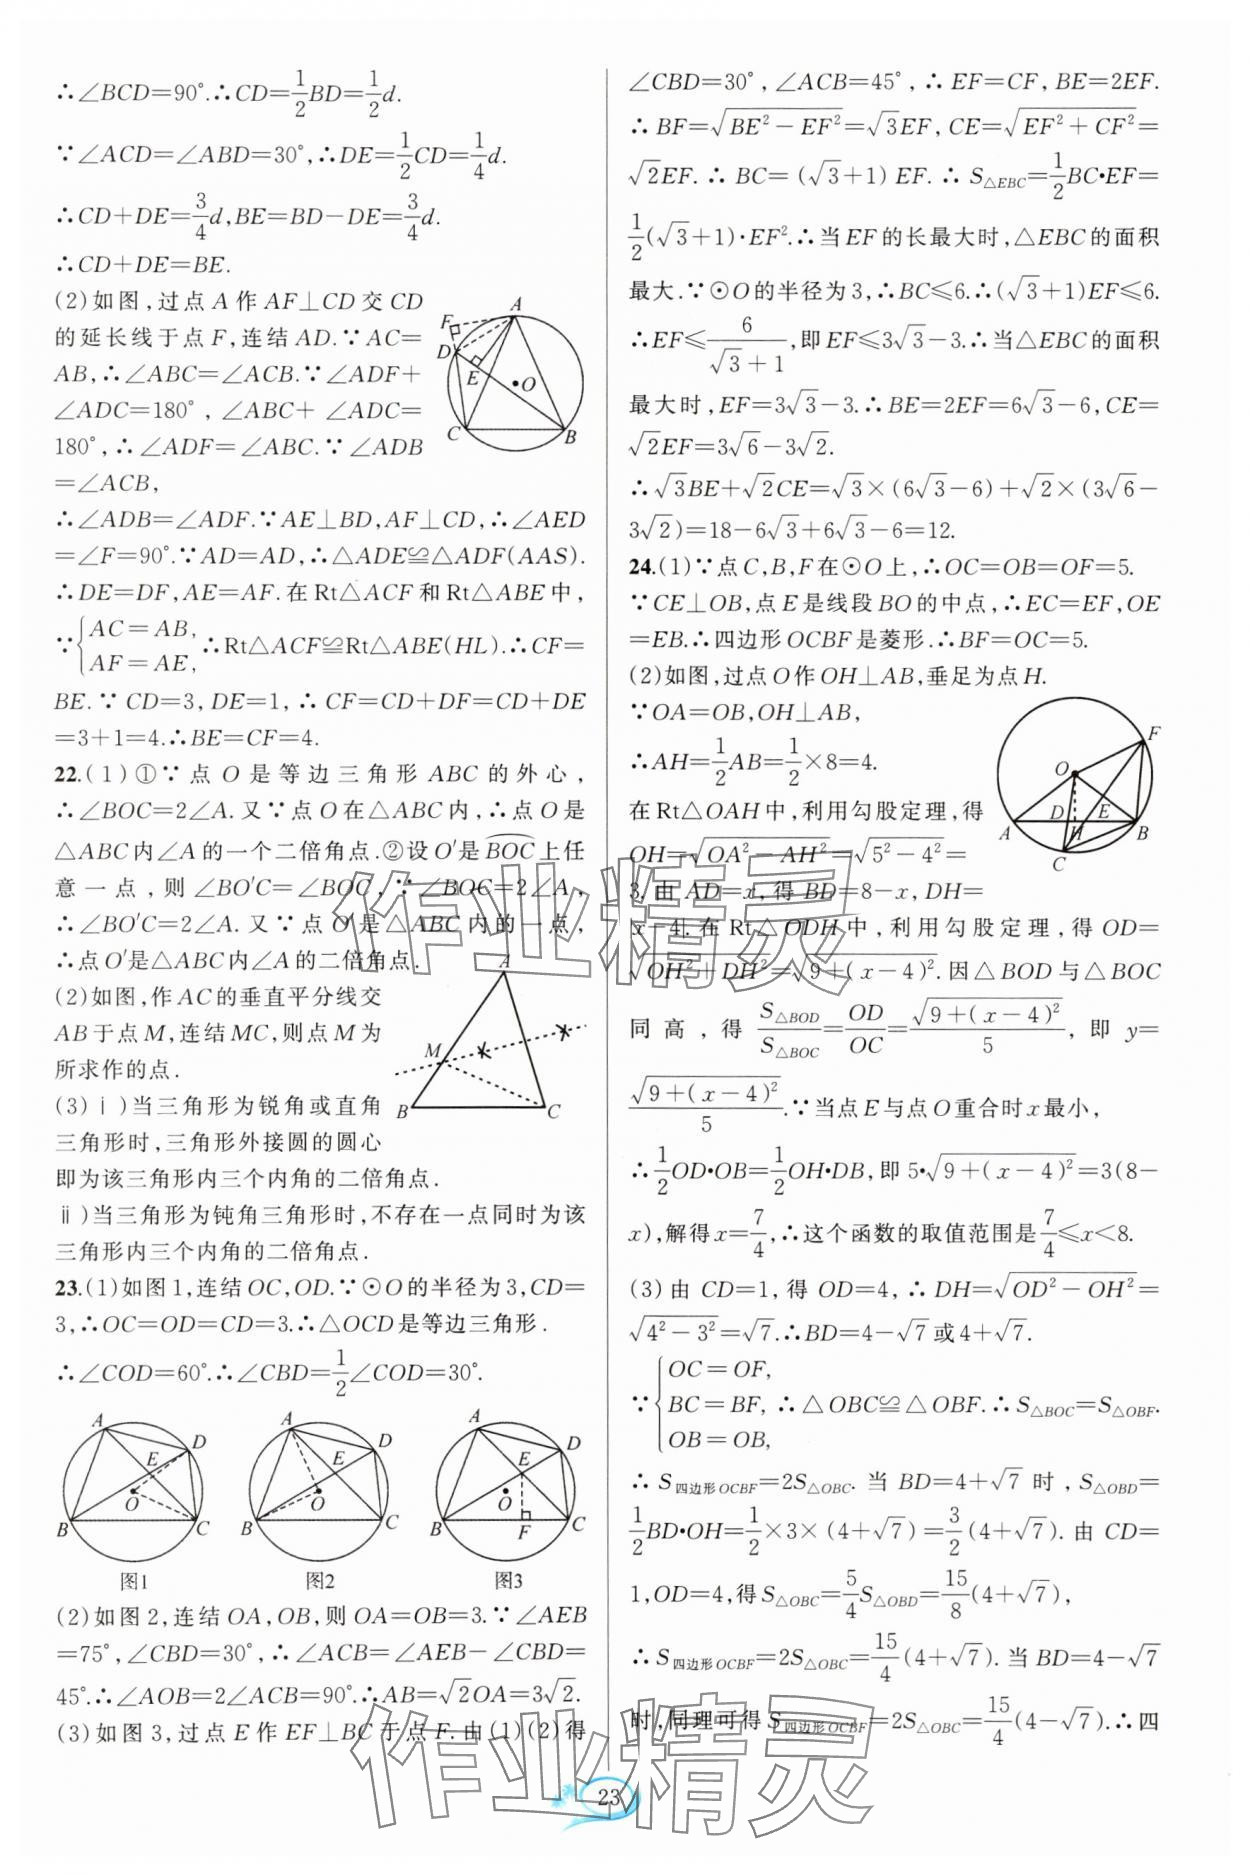 ∴∠BCD=90°.∴CD=1/2BD=1/2d.
∵∠ACD=∠ABD=30°,∴DE=1/2CD=1/4d.
∴CD+DE=3/4d,BE=BD-DE=3/4d.
∴CD+DE=BE.
(2)如图,过点A作AF⊥CD交CD
的延长线于点F,连结AD.∵AC=
AB,∴∠ABC=∠ACB.∵∠ADF+
∠ADC=180°,∠ABC+∠ADC=
180°,∴∠ADF=∠ABC.∵∠ADB
=∠ACB,
∴∠ADB=∠ADF.∵AE⊥BD,AF⊥CD,∴∠AED
=∠F=90°.∵AD=AD,∴△ADE≌△ADF(AAS).
∴DE=DF,AE=AF.在Rt△ACF和Rt△ABE中,
∵{AC=AB, AF=AE, ∴Rt△ACF≌Rt△ABE(HL).∴CF=
BE.∵CD=3,DE=1,∴CF=CD+DF=CD+DE
=3+1=4.∴BE=CF=4.
22.(1)①∵点O是等边三角形ABC的外心,
∴∠BOC=2∠A.又∵点O在△ABC内,∴点O是
△ABC内∠A的一个二倍角点.②设O′是BOC上任
意一点,则∠BO′C=∠BOC,∵∠BOC=2∠A,
∴∠BO′C=2∠A.又∵点O′是△ABC内的一点,
∴点O′是△ABC内∠A的二倍角点.
(2)如图,作AC的垂直平分线交
AB于点M,连结MC,则点M为
所求作的点.
(3)ⅰ)当三角形为锐角或直角
三角形时,三角形外接圆的圆心
即为该三角形内三个内角的二倍角点.
ⅱ)当三角形为钝角三角形时,不存在一点同时为该
三角形内三个内角的二倍角点.
23.(1)如图1,连结OC,OD.∵⊙O的半径为3,CD=
3,∴OC=OD=CD=3.∴△OCD是等边三角形.
∴∠COD=60°.∴∠CBD=1/2∠COD=30°.
A D E O B C
A D E O B C
A D E O B F C
图1 图2 图3
(2)如图2,连结OA,OB,则OA=OB=3.∵∠AEB
=75°,∠CBD=30°,∴∠ACB=∠AEB-∠CBD=
45°.∴∠AOB=2∠ACB=90°.∴AB=√2OA=3√2.
(3)如图3,过点E作EF⊥BC于点F.由(1)(2)得
F A D E O C B
A M B C
∠CBD=30°,∠ACB=45°,∴EF=CF,BE=2EF.
∴BF=√(BE²-EF²)=√3EF,CE=√(EF²+CF²)=
√2EF.∴BC=(√3+1)EF.∴S△EBC=1/2BC•EF=
1/2(√3+1)•EF².∴当EF的长最大时,△EBC的面积
最大.∵⊙O的半径为3,∴BC≤6.∴(√3+1)EF≤6.
∴EF≤6/(√3+1),即EF≤3√3-3.∴当△EBC的面积
最大时,EF=3√3-3.∴BE=2EF=6√3-6,CE=
√2EF=3√6-3√2.
∴√3BE+√2CE=√3×(6√3-6)+√2×(3√6-
3√2)=18-6√3+6√3-6=12.
24.(1)∵点C,B,F在⊙O上,∴OC=OB=OF=5.
∵CE⊥OB,点E是线段BO的中点,∴EC=EF,OE
=EB.∴四边形OCBF是菱形.∴BF=OC=5.
(2)如图,过点O作OH⊥AB,垂足为点H.
∵OA=OB,OH⊥AB,
∴AH=1/2AB=1/2×8=4.
在Rt△OAH中,利用勾股定理,得
OH=√(OA²-AH²)=√(5²-4²)=
3.由AD=x,得BD=8-x,DH=
x-4.在Rt△ODH中,利用勾股定理,得OD=
√(OH²+DH²)=√(9+(x-4)²).因△BOD与△BOC
同高,得S△BOD/S△BOC=OD/OC=√(9+(x-4)²)/5,即y=
√(9+(x-4)²)/5.∵当点E与点O重合时x最小,
∴1/2OD•OB=1/2OH•DB,即5•√(9+(x-4)²)=3(8-
x),解得x=7/4,∴这个函数的取值范围是7/4≤x<8.
(3)由CD=1,得OD=4,∴DH=√(OD²-OH²)=
√(4²-3²)=√7.∴BD=4-√7或4+√7.
∵{OC=OF, BC=BF, OB=OB, ∴△OBC≌△OBF.∴S△BOC=S△OBF.
∴S四边形OCBF=2S△OBC.当BD=4+√7时,S△OBD=
1/2BD•OH=1/2×3×(4+√7)=3/2(4+√7).由CD=
1,OD=4,得S△OBC=5/4S△OBD=15/8(4+√7),
∴S四边形OCBF=2S△OBC=15/4(4+√7).当BD=4-√7
时,同理可得S四边形OCBF=2S△OBC=15/4(4-√7).∴四
F O D E A H B C
作业精灵
作业精灵
23